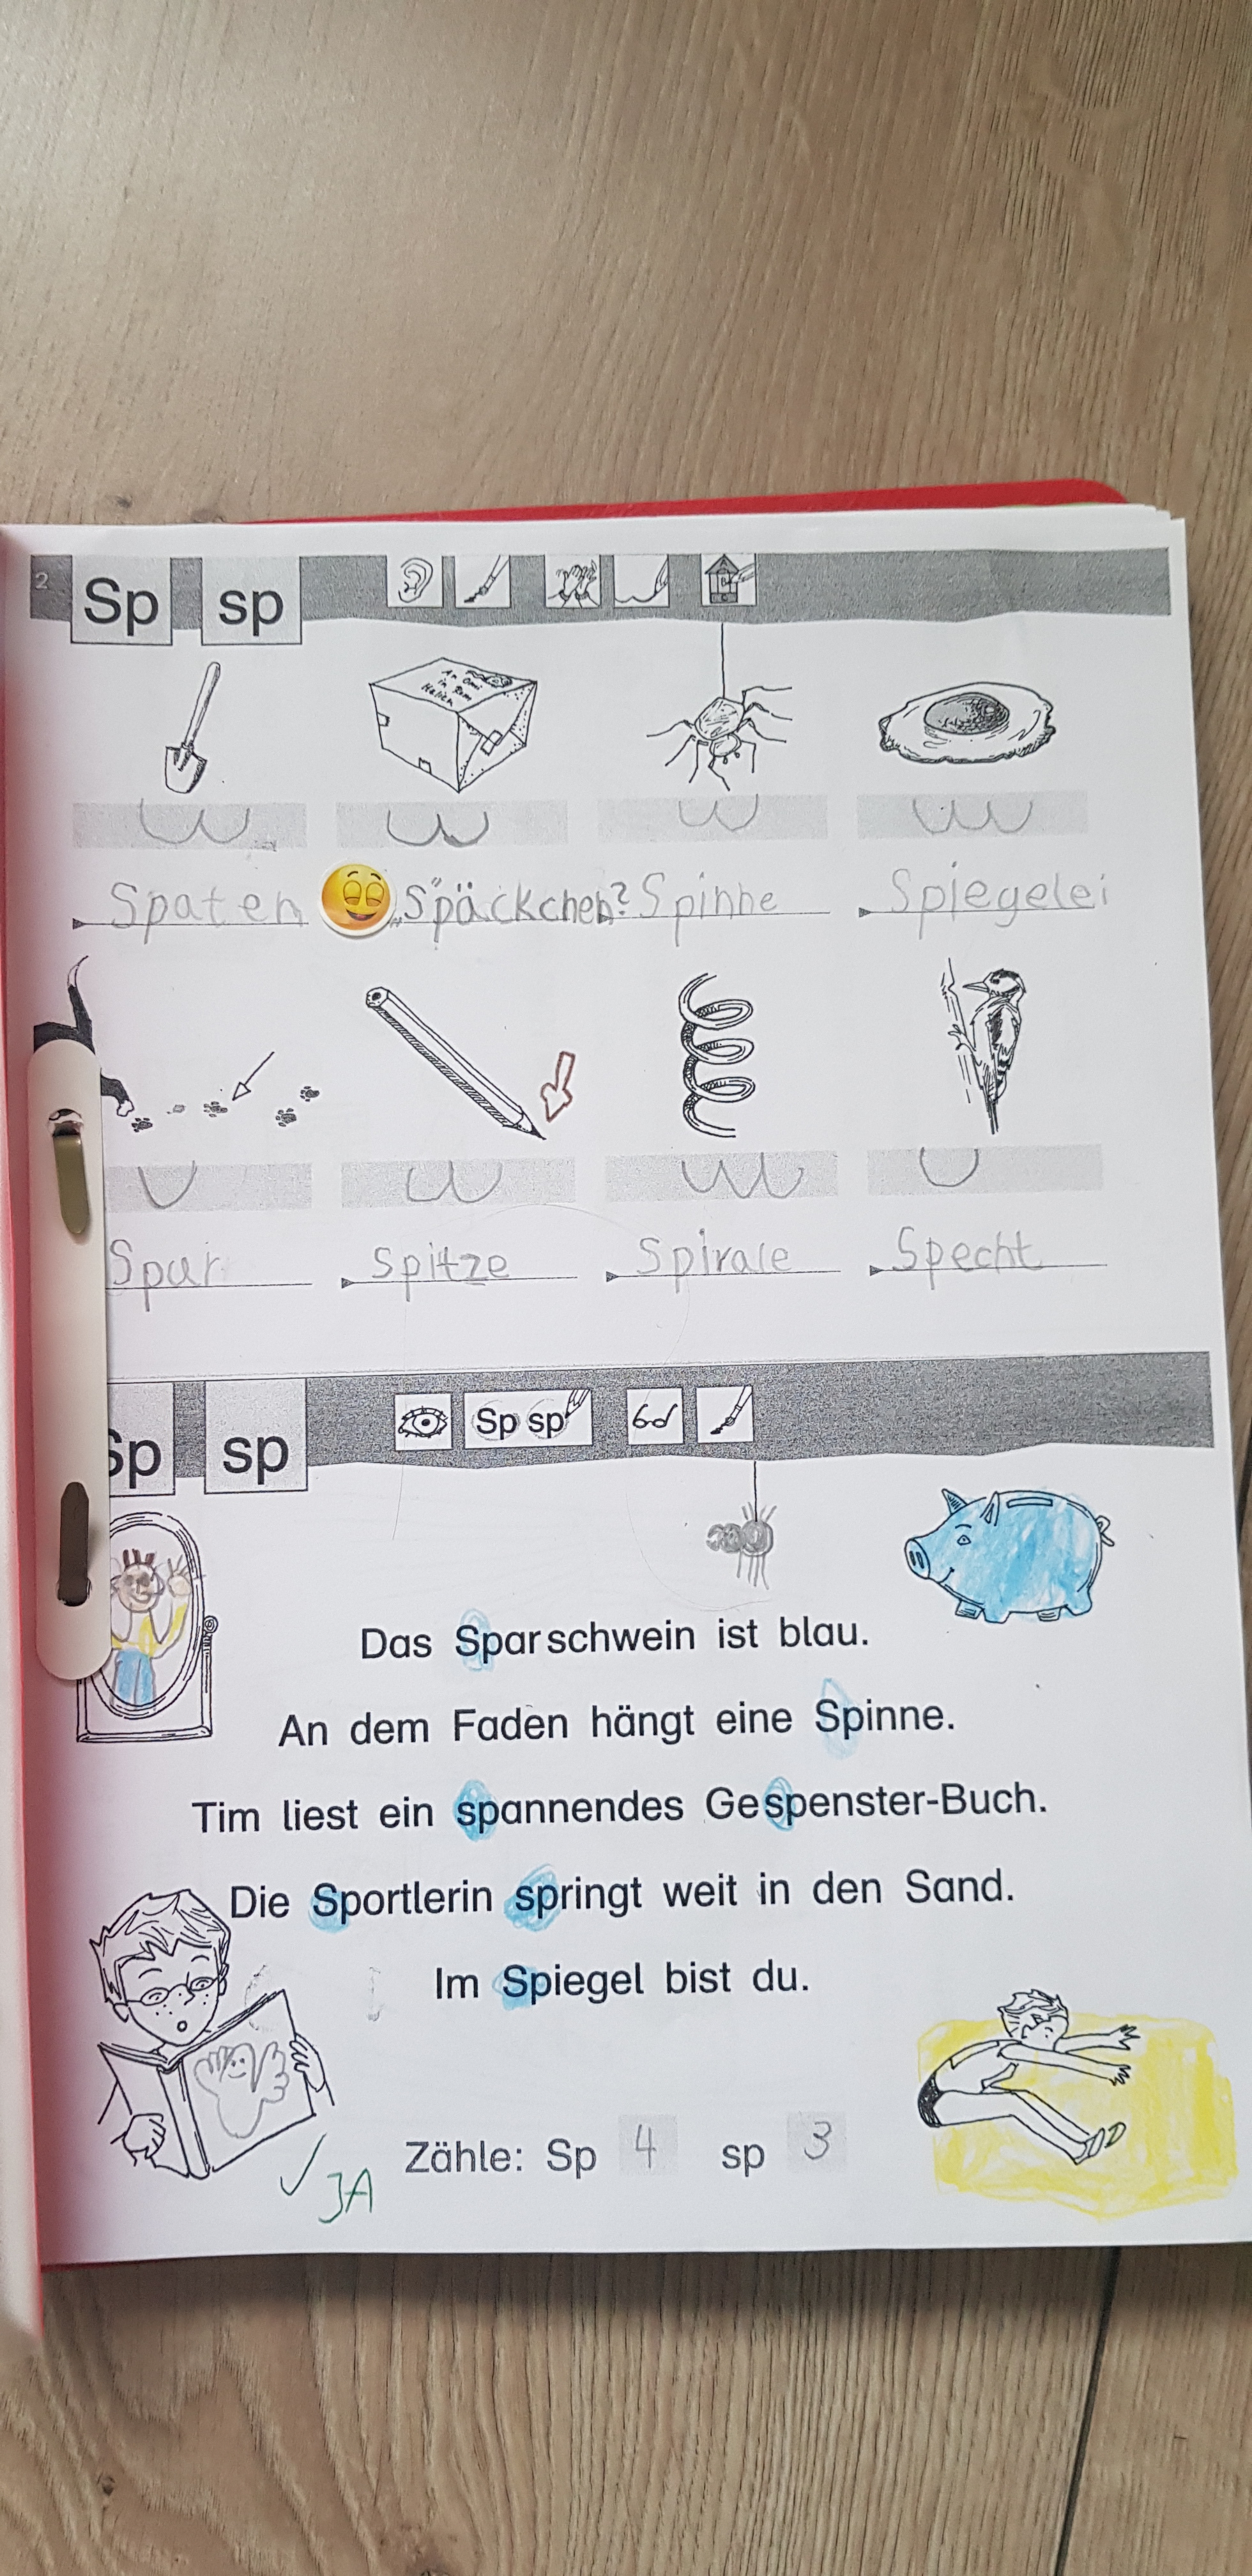 2 Sp sp
An Omi
in Bom
Spaten „S"päckchen? Spinne Spiegelei
Spur Spitze Spirale Specht
Sp sp Sp sp
Das Sparschwein ist blau.
An dem Faden hängt eine Spinne.
Tim liest ein spannendes Gespenster-Buch.
Die Sportlerin springt weit in den Sand.
Im Spiegel bist du.
Zähle: Sp 4 sp 3
JA